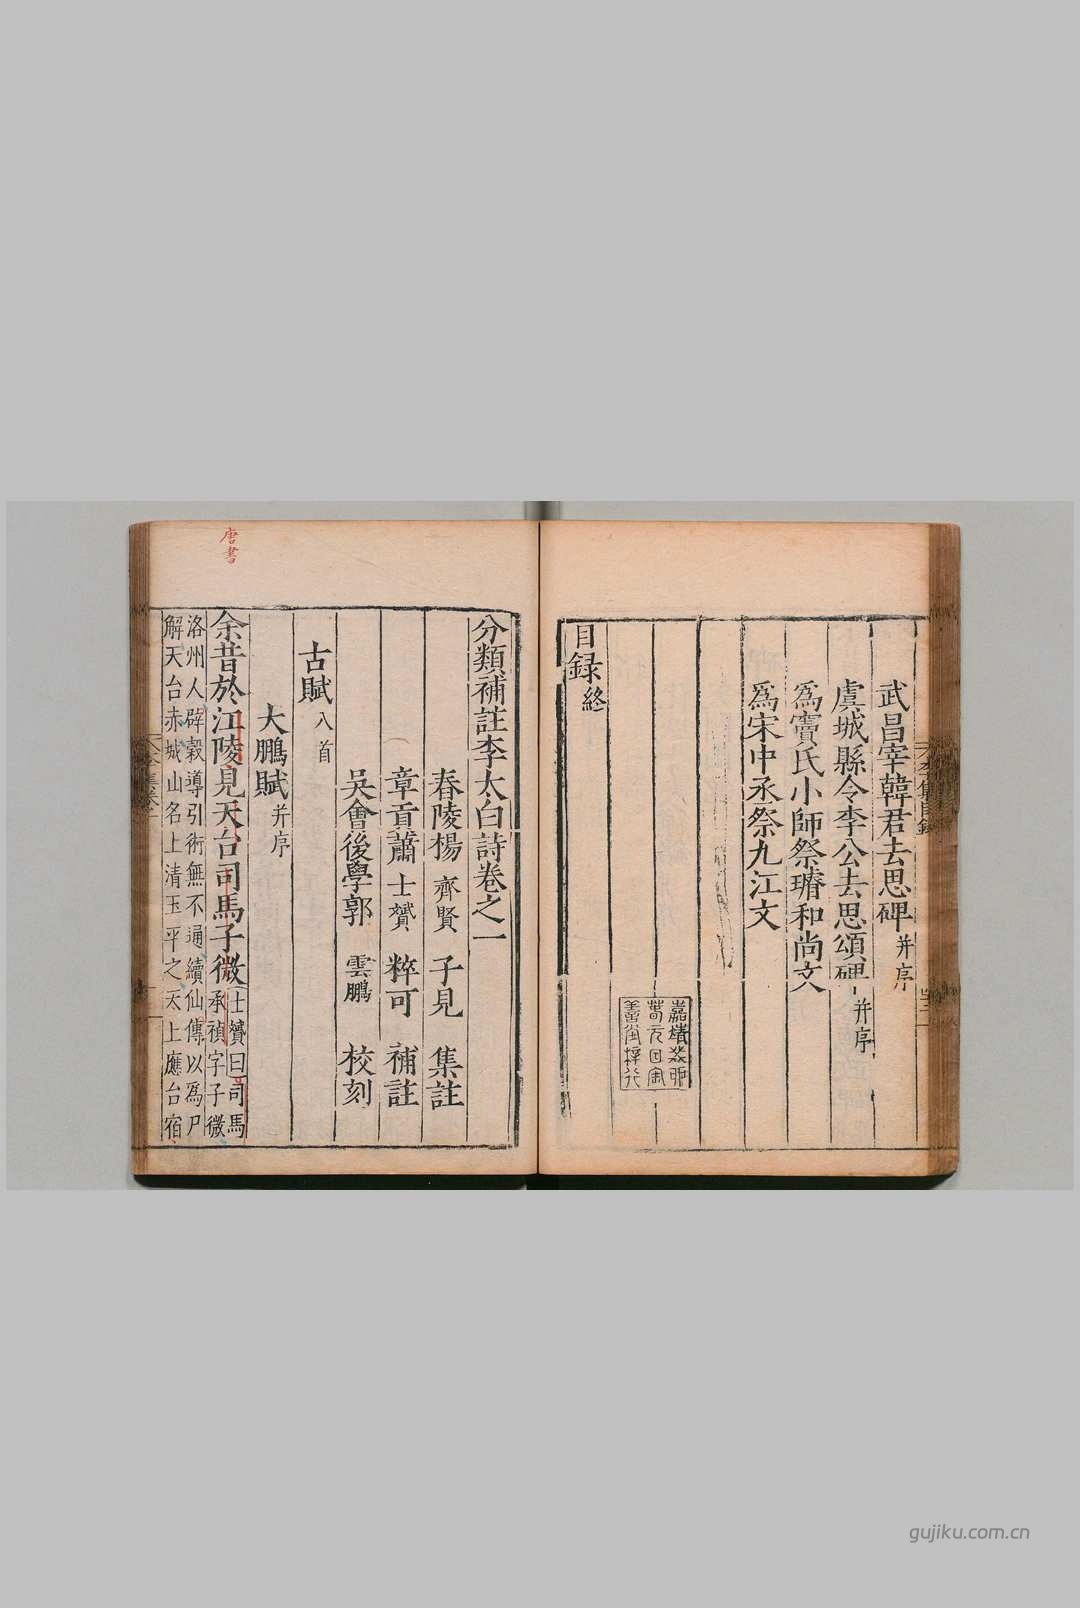 武昌宰韓君去思碑并序
虞城縣令李公去思頌碑并序
爲竇氏小師祭璿和尚文
爲宋中丞祭九江文
目録終
嘉靖癸卯
善堂梓行
分類補註李太白詩卷之一
舂陵楊齊賢子見集註
章貢蕭士贇粹可補註
吳會後學郭雲鵬校刻
古賦八首
大鵬賦并序
余昔於江陵見天台司馬子微士贇曰司馬
承禎字子微
洛州人辟穀導引術無不通續仙傳以爲尸
解天台赤城山名上清玉平之天上應台宿
唐書
gujiku.com.cn